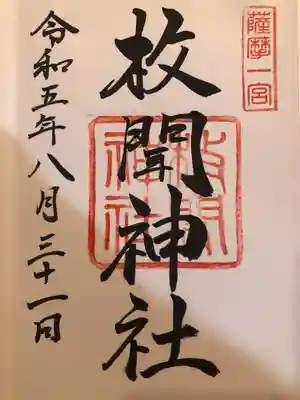 薩摩一宮
枚聞神社
枚聞
神社
令和五年八月三十一日